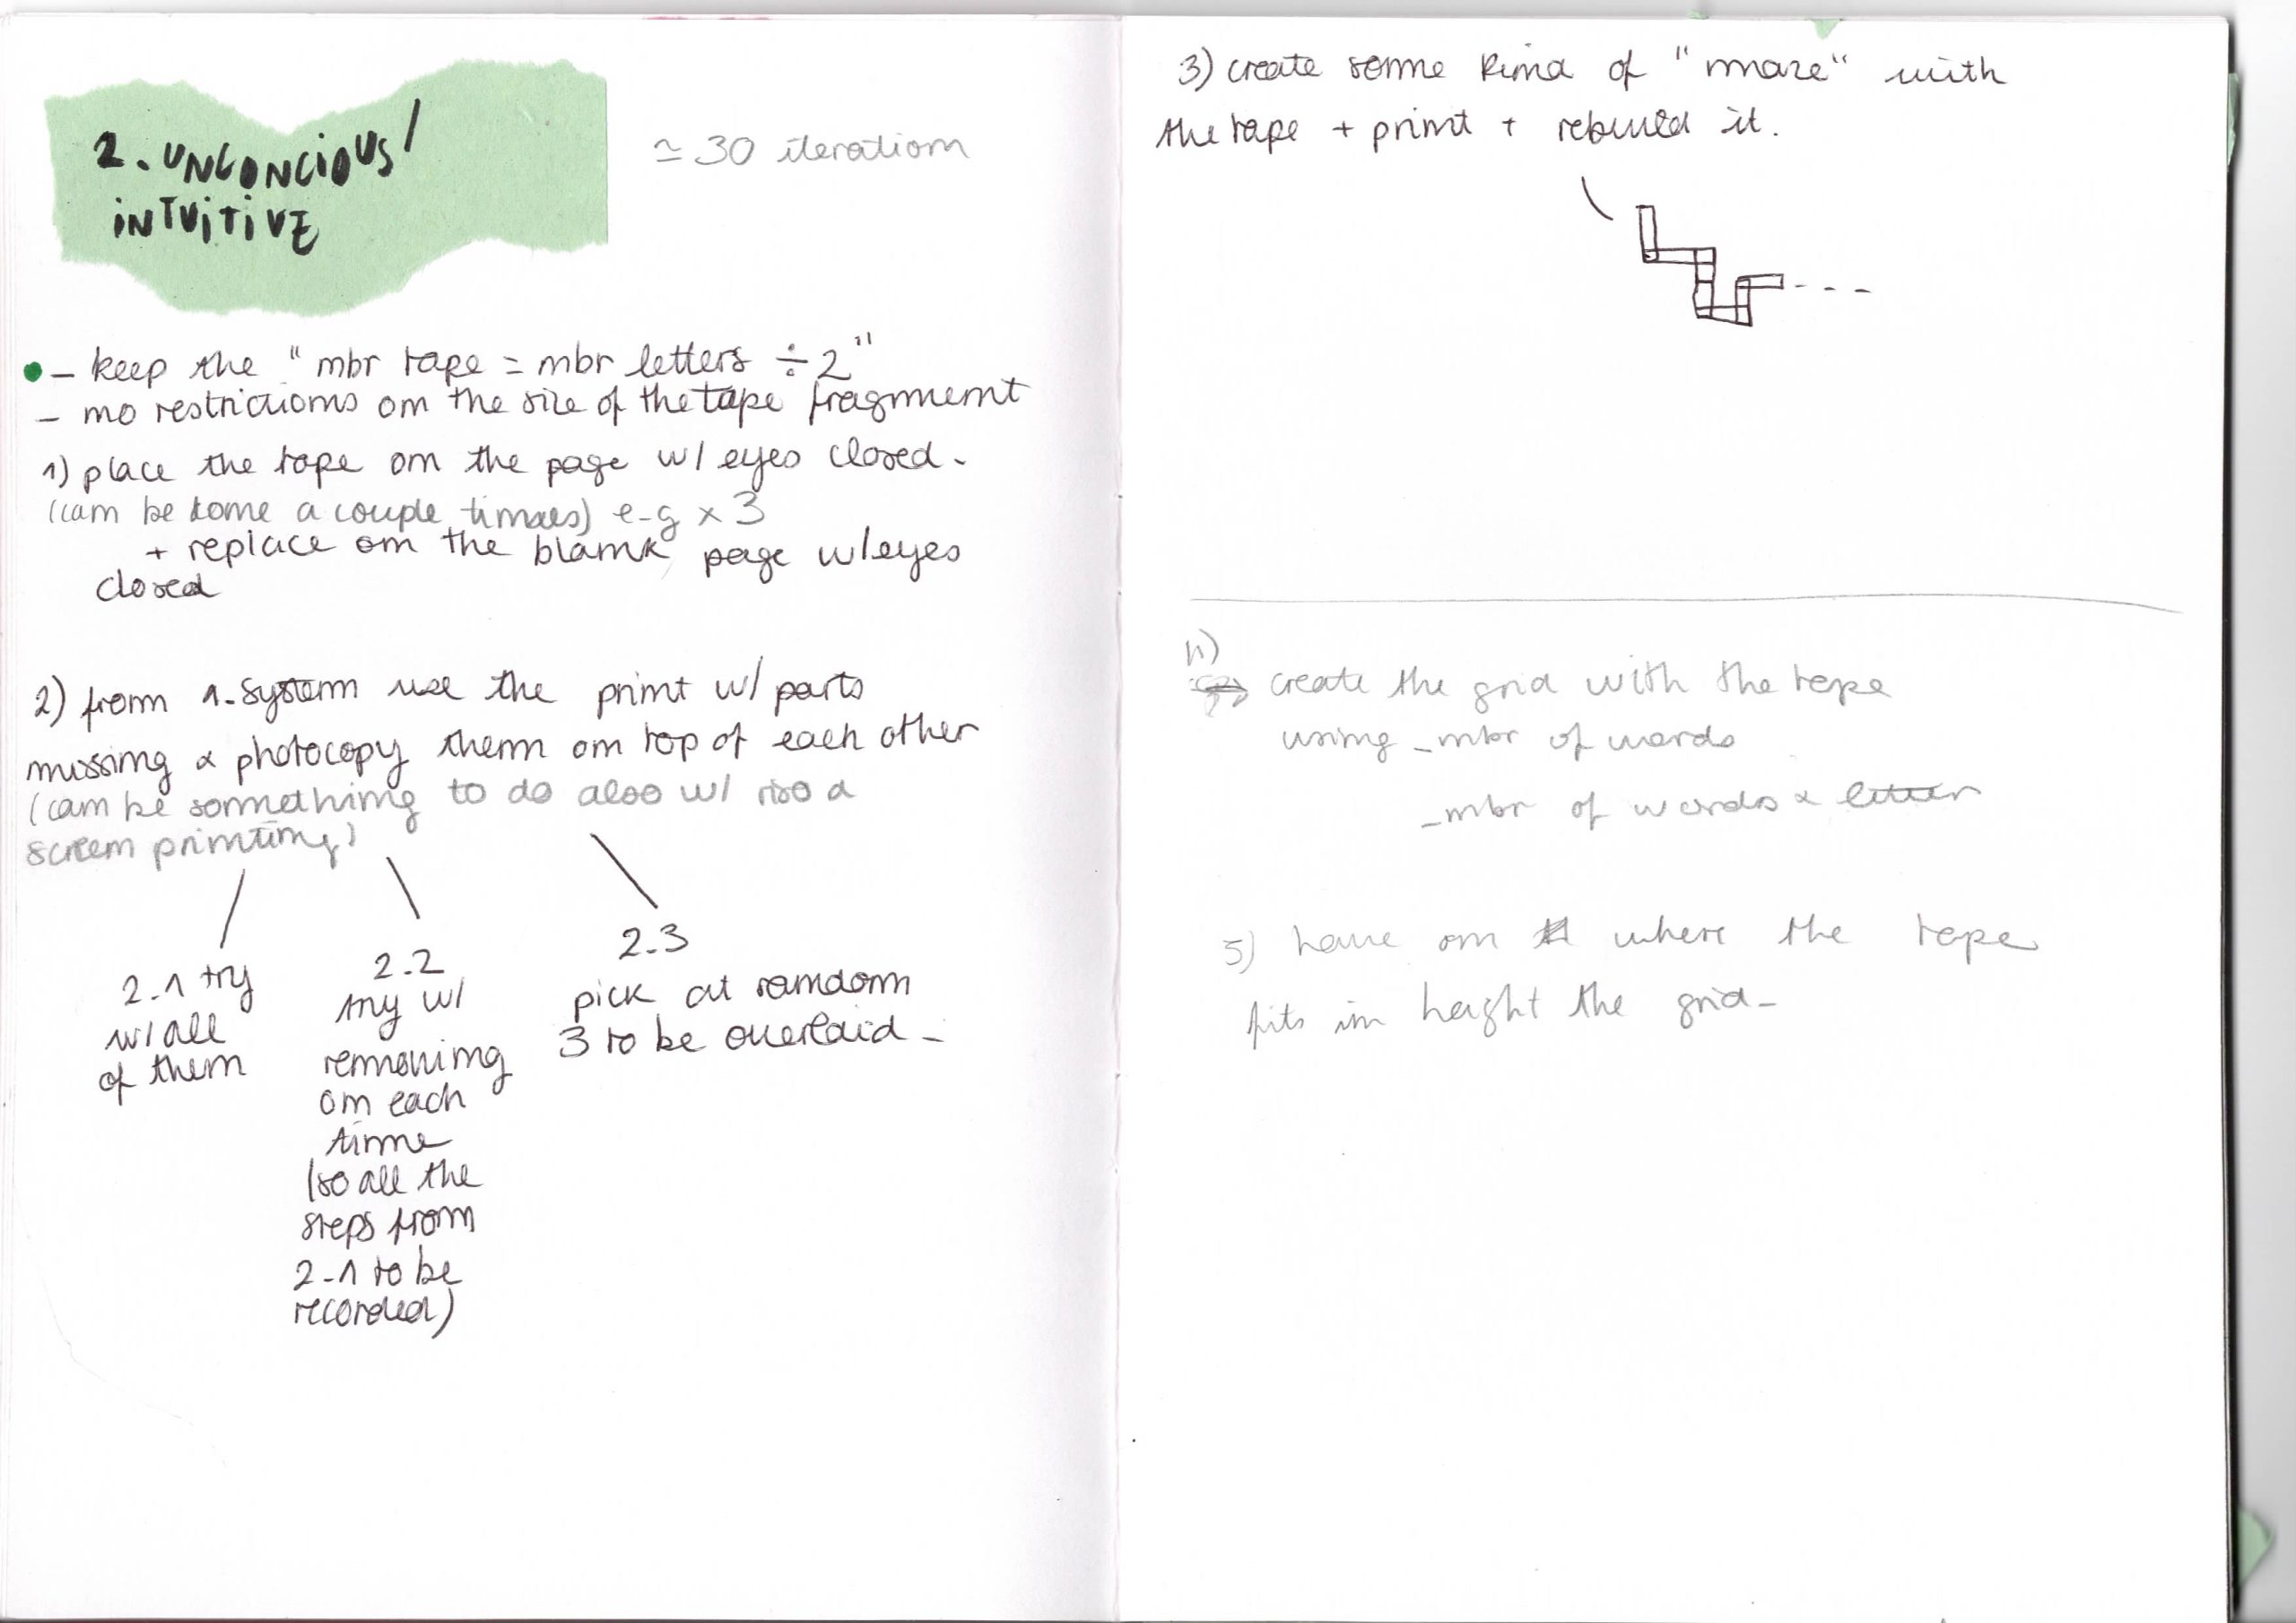 2. UNCONCIOUS/
INTUITIVE
≃ 30 iteration
- keep the "nbr tape = nbr letters ÷ 2"
- no restrictions on the size of the tape fragment
1) place the tape on the page w/ eyes closed.
(can be done a couple times) e-g x 3
+ replace on the blank page w/ eyes
closed
2) from 1. System use the print w/ parts
missing & photocopy them on top of each other
(can be something to do also w/ riso &
screen printing)
2.1 try
w/ all
of them
2.2
try w/
removing
on each
time
(so all the
steps from
2.1 to be
recorded)
2.3
pick at random
3 to be overlaid.
3) create some kind of "maze" with
the tape + print + rebuild it.
4)
create the grid with the tape
using - nbr of words
- nbr of words & letter
5) have on where the tape
fits in height the grid.